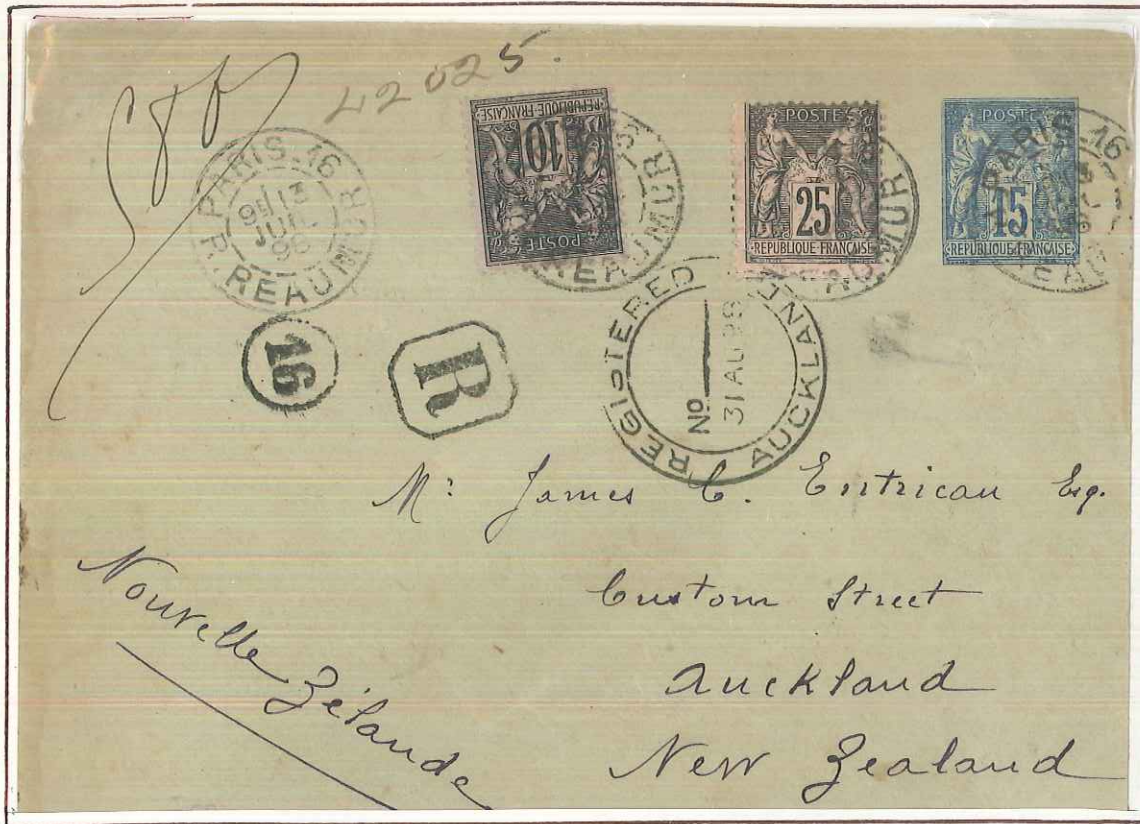 42025.
580
PARIS_16
9E/13
JUIL
98
R. REAUMUR
REPUBLIQUE FRANÇAISE
10
POSTES
REAUMUR
POSTES
25
REPUBLIQUE FRANÇAISE
POSTES
15
REPUBLIQUE FRANÇAISE
PARIS_16
16
R
REGISTERED
AUCKLAND
No
31 AU 98
Mr James C. Entrican Esq.
Custom Street
Auckland
New Zealand
Nouvelle Zélande